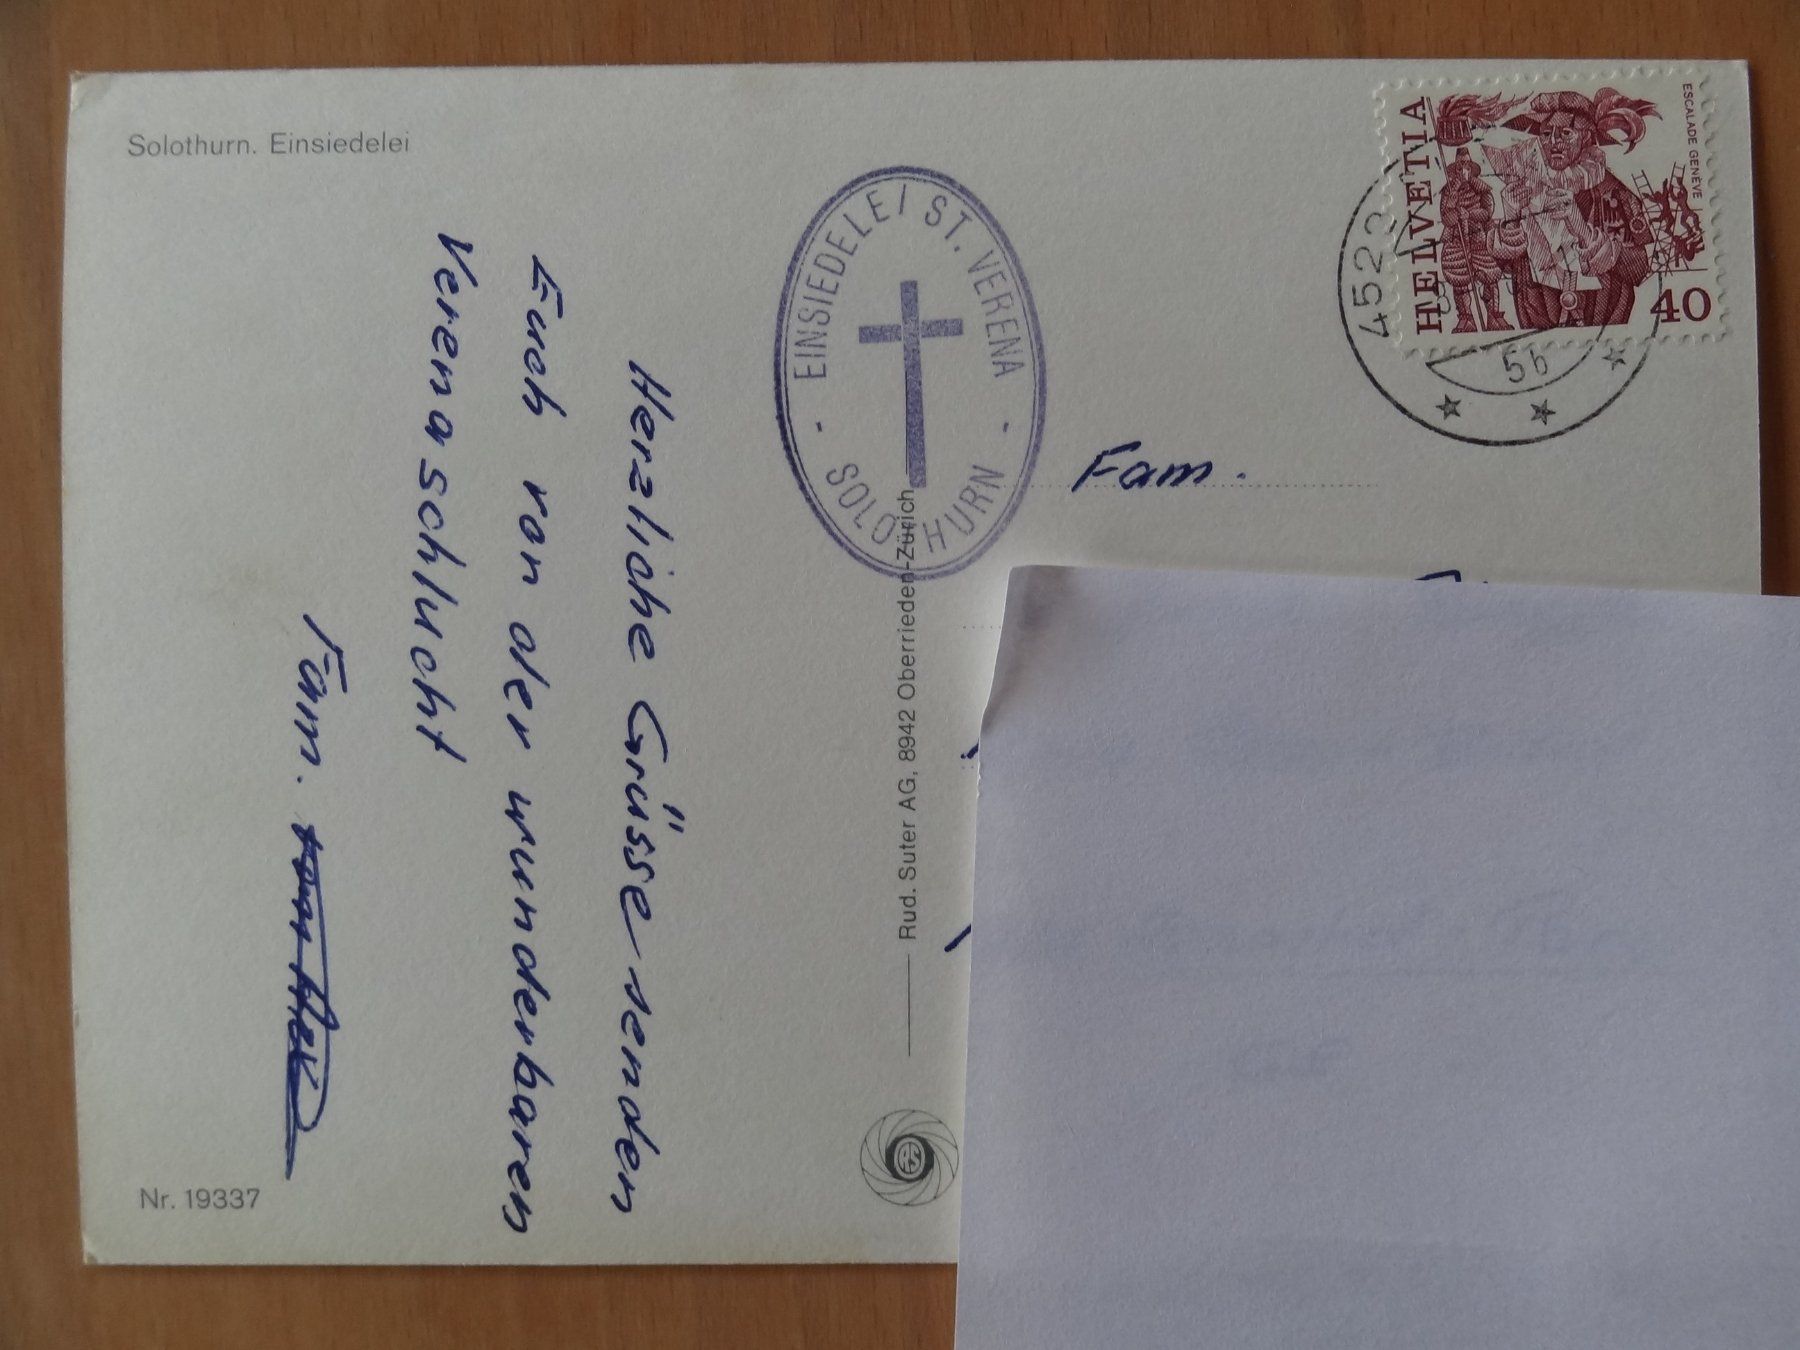 Solothurn. Einsiedelei
Herzliche Grüsse senden
Euch von der wunderbaren
Verenaschlucht
Fam.
Nr. 19337
EINSIEDELEI ST. VERENA
- SOLOTHURN -
Rud. Suter AG, 8942 Oberrieden-Zürich
HELVETIA
ESCALADE GENÈVE
40
4523
5b
Fam.